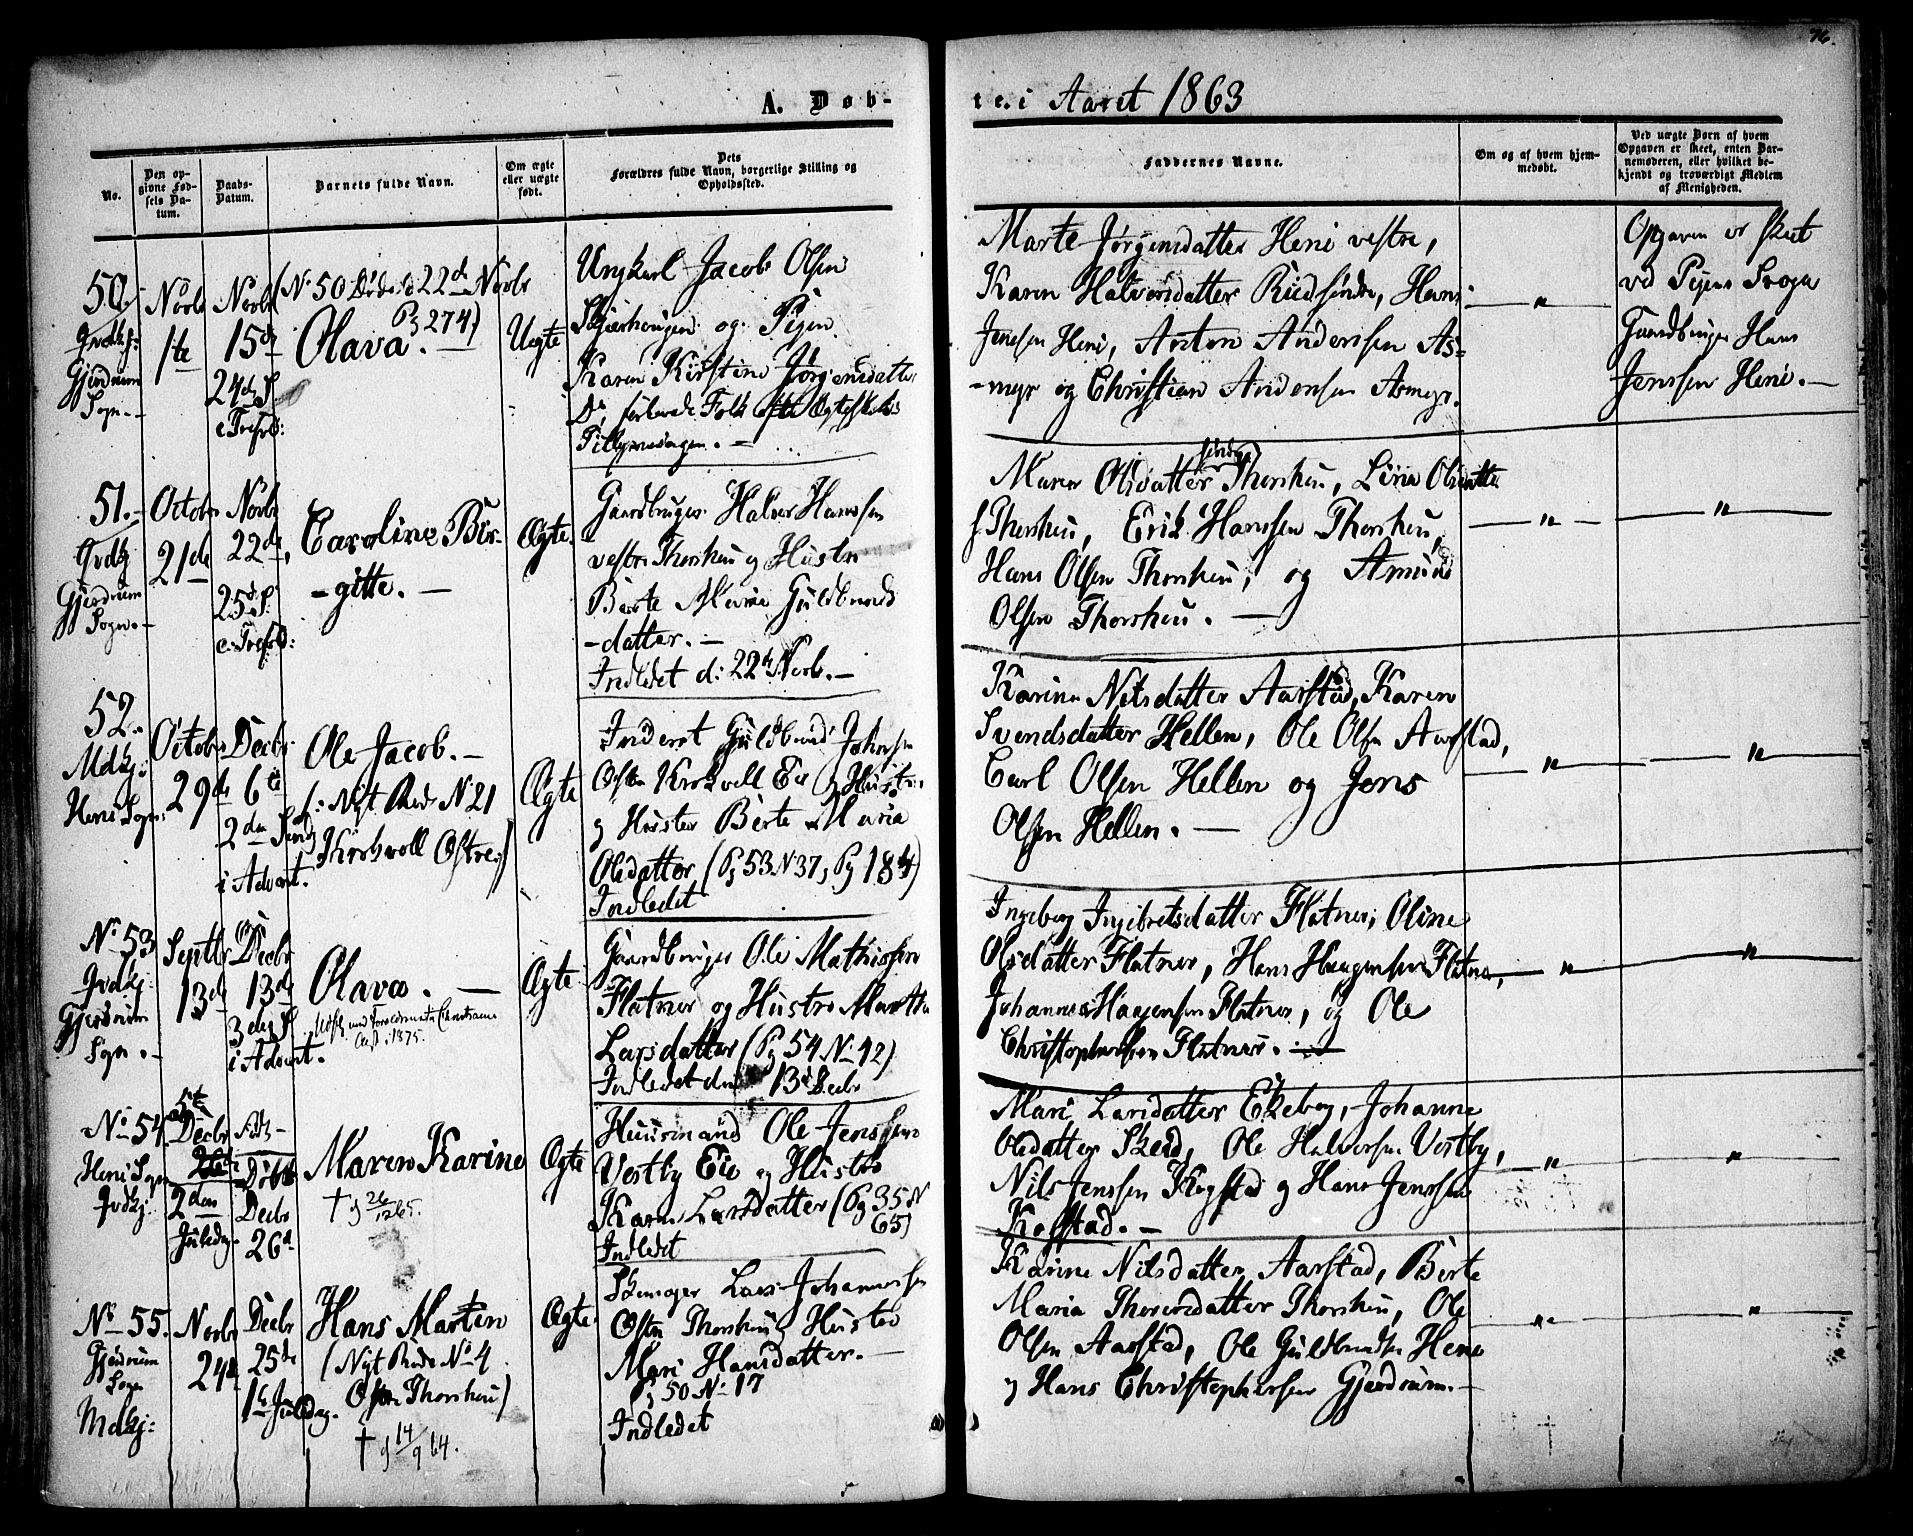 76.
A. Døb-
te. i Aaret 1863
No.
Den op-
givne Fød-
sels Da-
tum.
Daabs-
Datum.
Barnets fulde Navn.
Om ægte
eller uægte
født.
Dets
Forældres fulde Navn, borgerlige Stilling og
Opholdssted.
Faddernes Navne.
Om og af hvem hjem-
medøbt.
Ved uægte Børn af hvem
Opgaven er skeet, enten Bar-
nemoderen, eller hvilket be-
kjendt og troværdigt Medlem
af Menigheden.
50.
Gjerdrum
Sogn.-
Novbr
1te
Novbr
15de
24de S.
e. Trefold:
(No 50 Døde d 22d Novbr
Pg 274)
Olava. —
Uægte
Ungkarl Jacob Olsen
og Pigen
Karen Kirstine Jørgensdatter
Marte Jørgensdatter Heni vestre,
Karen Halvorsdatter Rudsindre, Hans
Jensen Heni, Anton Andersen As-
-myr og Christian Andersen Asmyr.
"
Opgaven er skeet
ved Pigens Svoger
Gaardbruger Hans
Jenssen Heni. —
51.-
Gjerdrum
Sogn.-
Octobr
21de
Novbr
22de,
25de S.
e. Trefold:
Caroline Bir-
-gitte. —
Ægte.
Gaardbruger Halvor Hanssen
vestre Thorsheu og Hustro
Berte Marie Guldbrands
-datter. —
Indledet d: 22de Novb. —
Maren Olsdatter Thorsheu, Lina Olsdatter
Thorsheu, Erik Hanssen Thorsheu,
Hans Olsen Thorsheu, og Amund
Olsen Thorsheu. —
"
"
52.
Mdkj:
Heni Sogn:
Octobr
29de
Decbr
6te
2den Sønd
i Advent.
Ole Jacob. —
(: Nyt Rode No 21
Kirkvoll Østre:)
Ægte
Inderst Guldbrand Johnsen
Østre Kirkvoll Eie og Hustro
og Hustro Berte Maria
Olsdatter (Pg 53 No 37, Pg 184)
Indledet
Karine Nilsdatter Aarstad, Karen
Svendsdatter Hellen, Ole Olsen Aarstad,
Carl Olsen Hellen og Jens
Olsen Hellen. —
"
"
No 53
Gvdkj:
Gjerdrum
Sogn.-
Septbr
13de
Decbr
13de
3die S
i Advent.
Olava. —
1875.
Ægte
Gaardbruger Ole Mathissen
Flatner og Hustro Marthe
Larsdatter (Pg 54 No 42)
Indledet den 13de Decbr
Ingeborg Ingebretsdatter Flatner, Oline
Olsdatter Flatner, Hans Haagensen Flatner,
Johannes Haagensen Flatner, og Ole
Christophersen Flatner. —
"
"
No 54
Heni Sogn
Gvdkj.
5te
Decbr
2den
Juledag.
Født
Døbt
Decbr
26de
Maren Karine
† d 26/12 65.
Ægte
Huusmand Ole Jenssen
Vestby Eie og Hustro
Karen Larsdatter (Pg 35 No
65)
Indledet
Mari Larsdatter Ekeberg, Johanne
Olsdatter Skerd, Ole Halvorsen Vestby,
Nils Jenssen Kogstad og Hans Jenssen
Kogstad. —
"
"
No 55.
Gjerdrum
Sogn
Mdkj:
Novbr
24de
Decbr
25de
1ste Juledag.
Hans Martin
(Nyt Rode No 4
Østre Thorsheu)
† d 14/9 64.
Ægte.
Lars Johannessen
Østre Thorsheu og Hustro
Mari Hansdatter. —
Pg 50 No 17
Indledet
Karine Nilsdatter Aarstad, Berte
Maria Thorersdatter Thorsheu, Ole
Olsen Aarstad, Ole Guldbrandsen Heni
og Hans Christophersen Gjerdrum. —
"
"